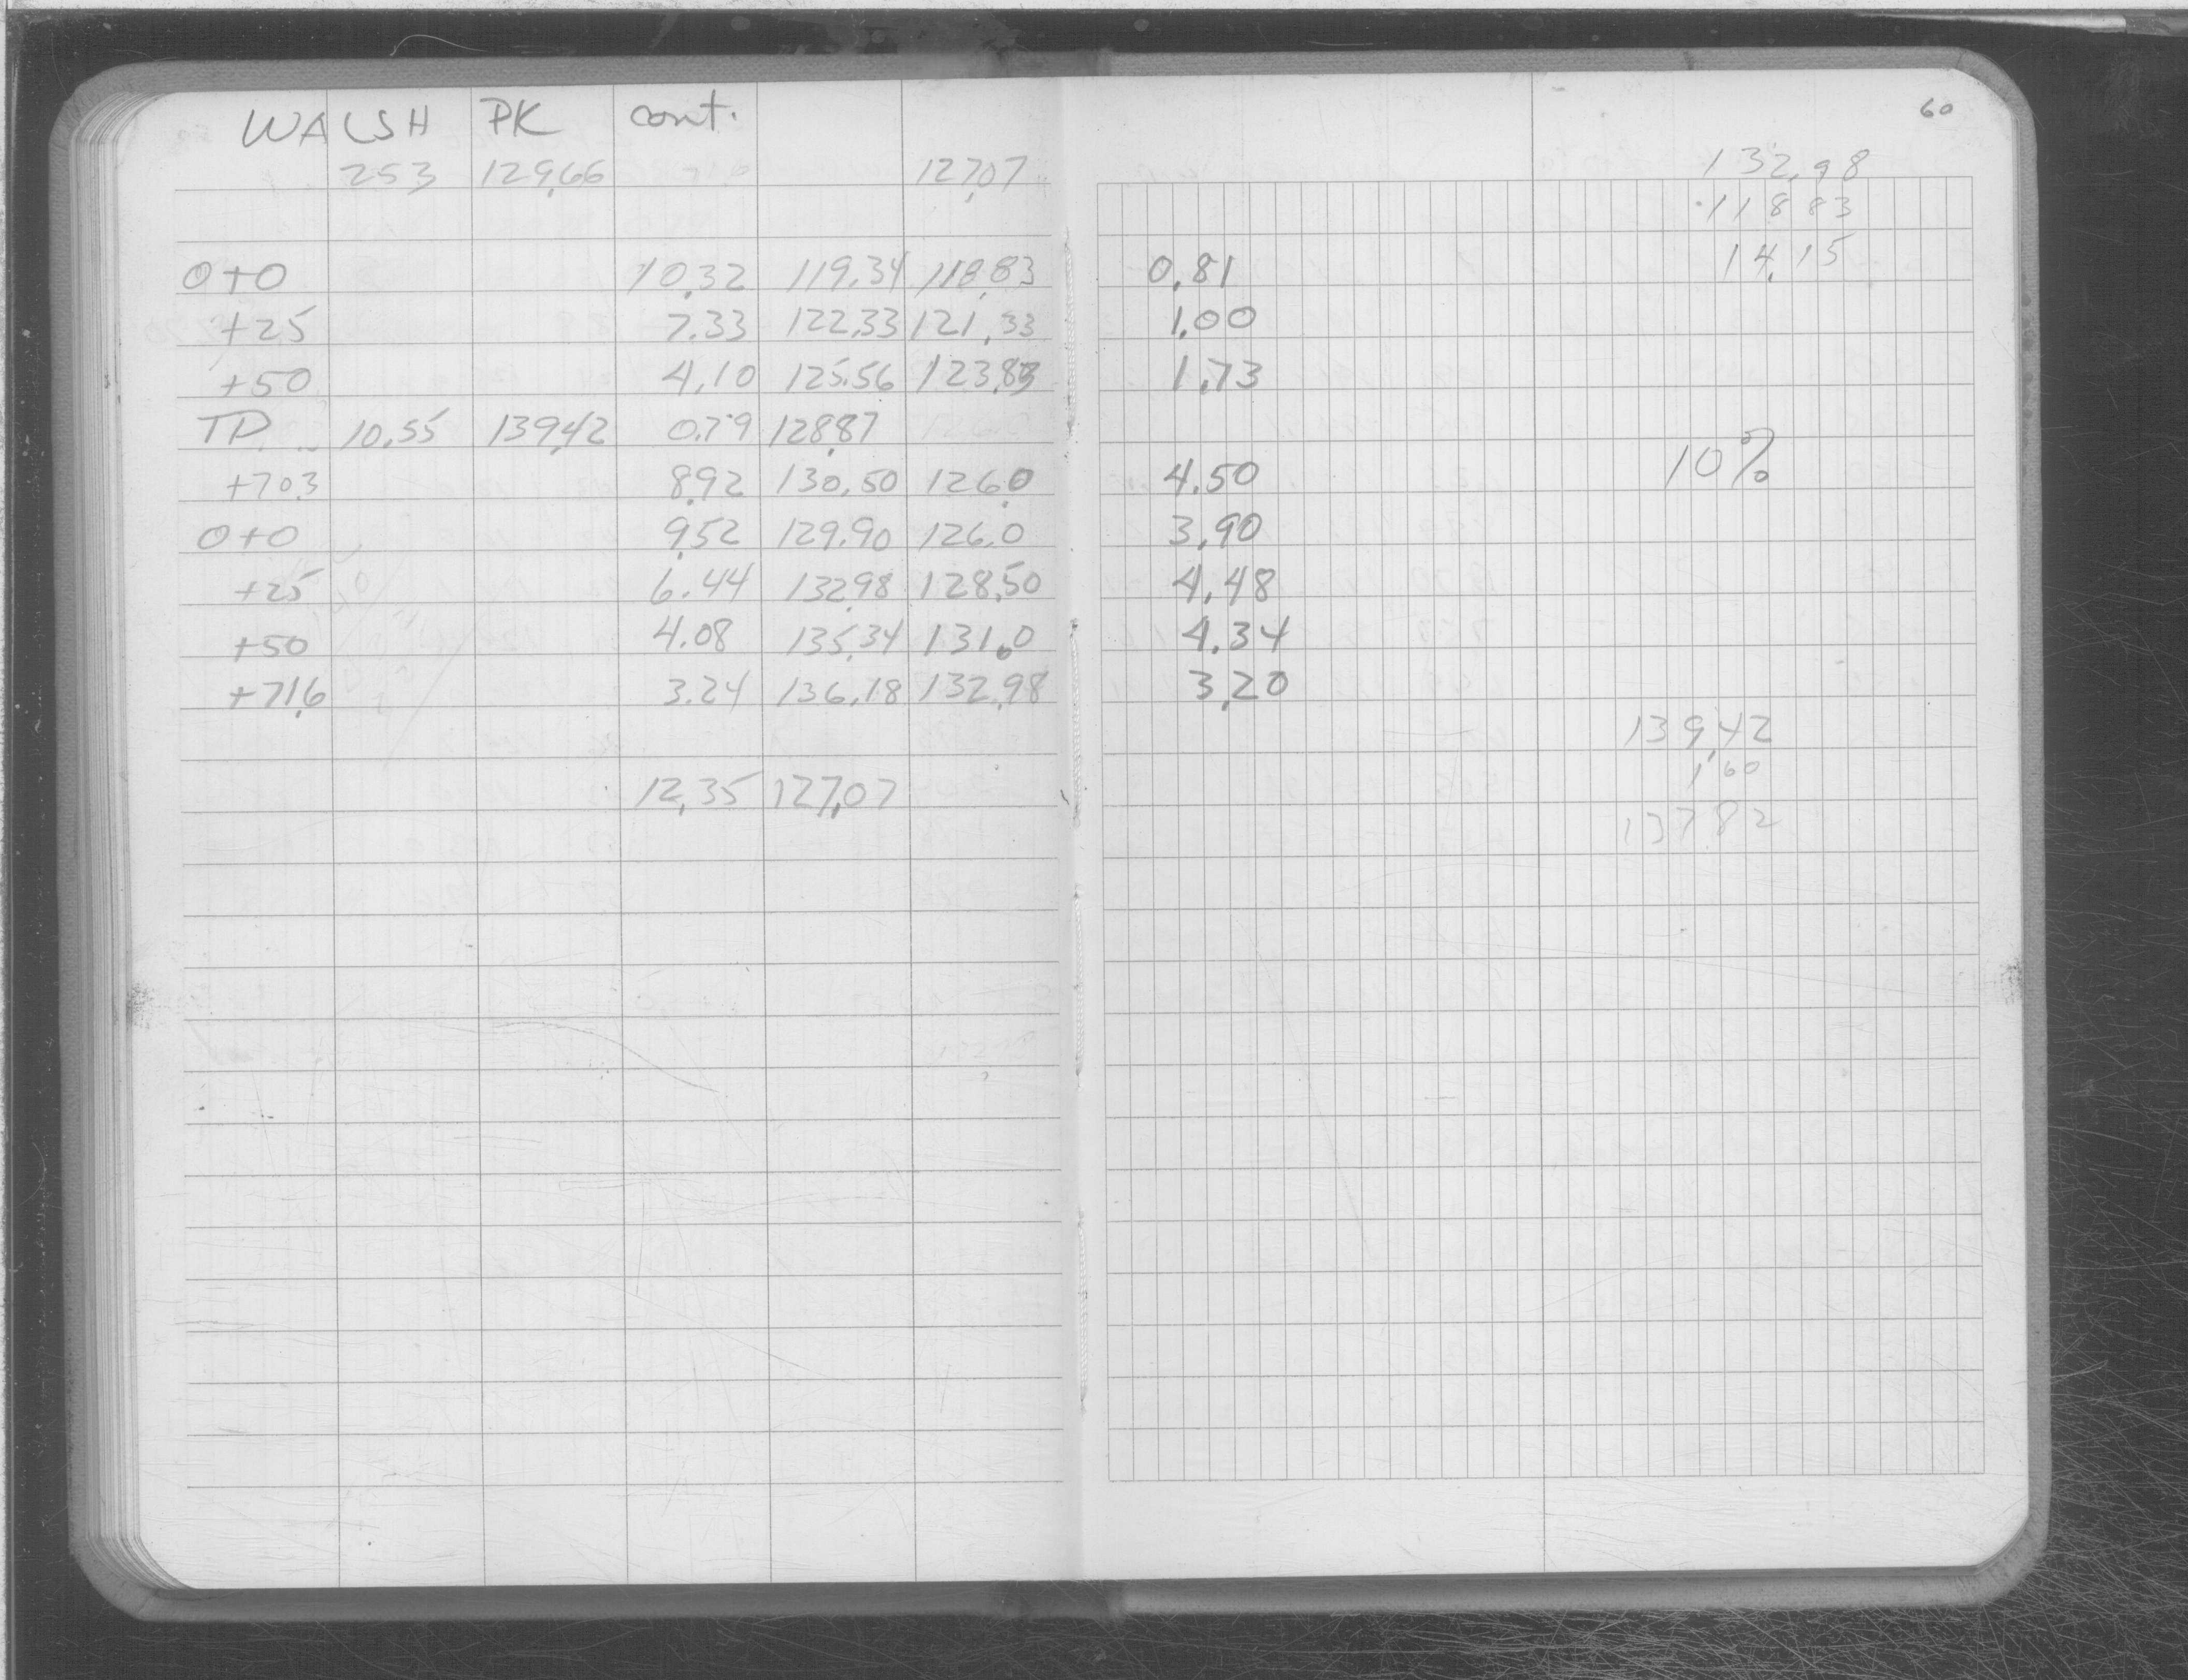 WALSH PK cont.
253 129.66 127.07
0+0 10.32 119.34 118.83
+25 7.33 122.33 121.33
+50 4.10 125.56 123.83
TP 10.55 139.42 0.79 128.87
+70.3 8.92 130.50 126.0
0+0 9.52 129.90 126.0
+25 6.44 132.98 128.50
+50 4.08 135.34 131.0
+71.6 3.24 136.18 132.98
12.35 127.07
60
132.98
118 83
14.15
0.81
1.00
1.73
10%
4.50
3.90
4.48
4.34
3.20
139.42
1.60
137.82